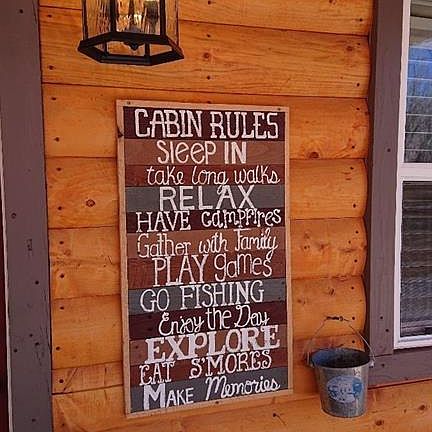 CABIN RULES
Sleep IN
take long walks
RELAX
HAVE campfires
Gather with family
PLAY games
GO FISHING
Enjoy the Day
EXPLORE
EAT S'MORES
MAKE Memories